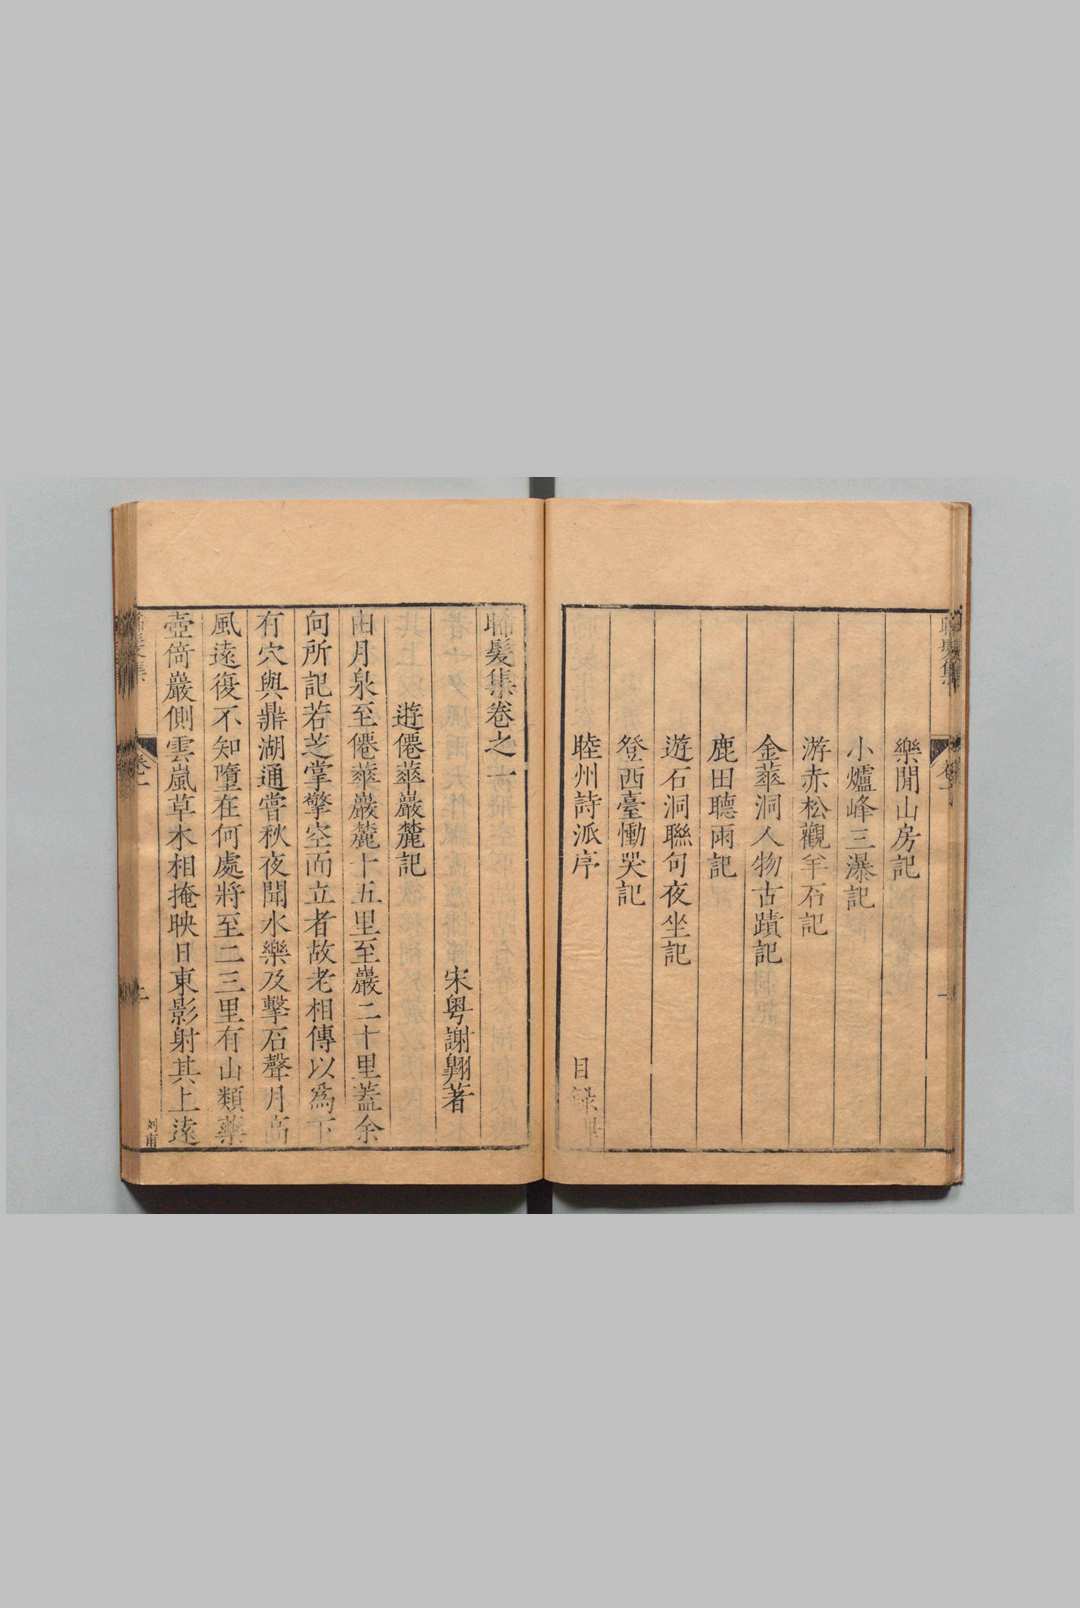 樂閒山房記
小爐峰三瀑記
游赤松觀羊石記
金華洞人物古蹟記
鹿田聽雨記
遊石洞聯句夜坐記
登西臺慟哭記
睦州詩派序
目録畢
晞髮集卷之一
宋粵謝翱著
遊僊華巖麓記
由月泉至僊華巖麓十五里至巖二十里蓋余
向所記若芝掌擎空而立者故老相傳以為下
有穴與鼎湖通嘗秋夜聞水樂及擊石聲月高
風遠復不知墮在何處將至二三里有山類藥
壺倚巖側雲嵐草木相掩映日東影射其上遠